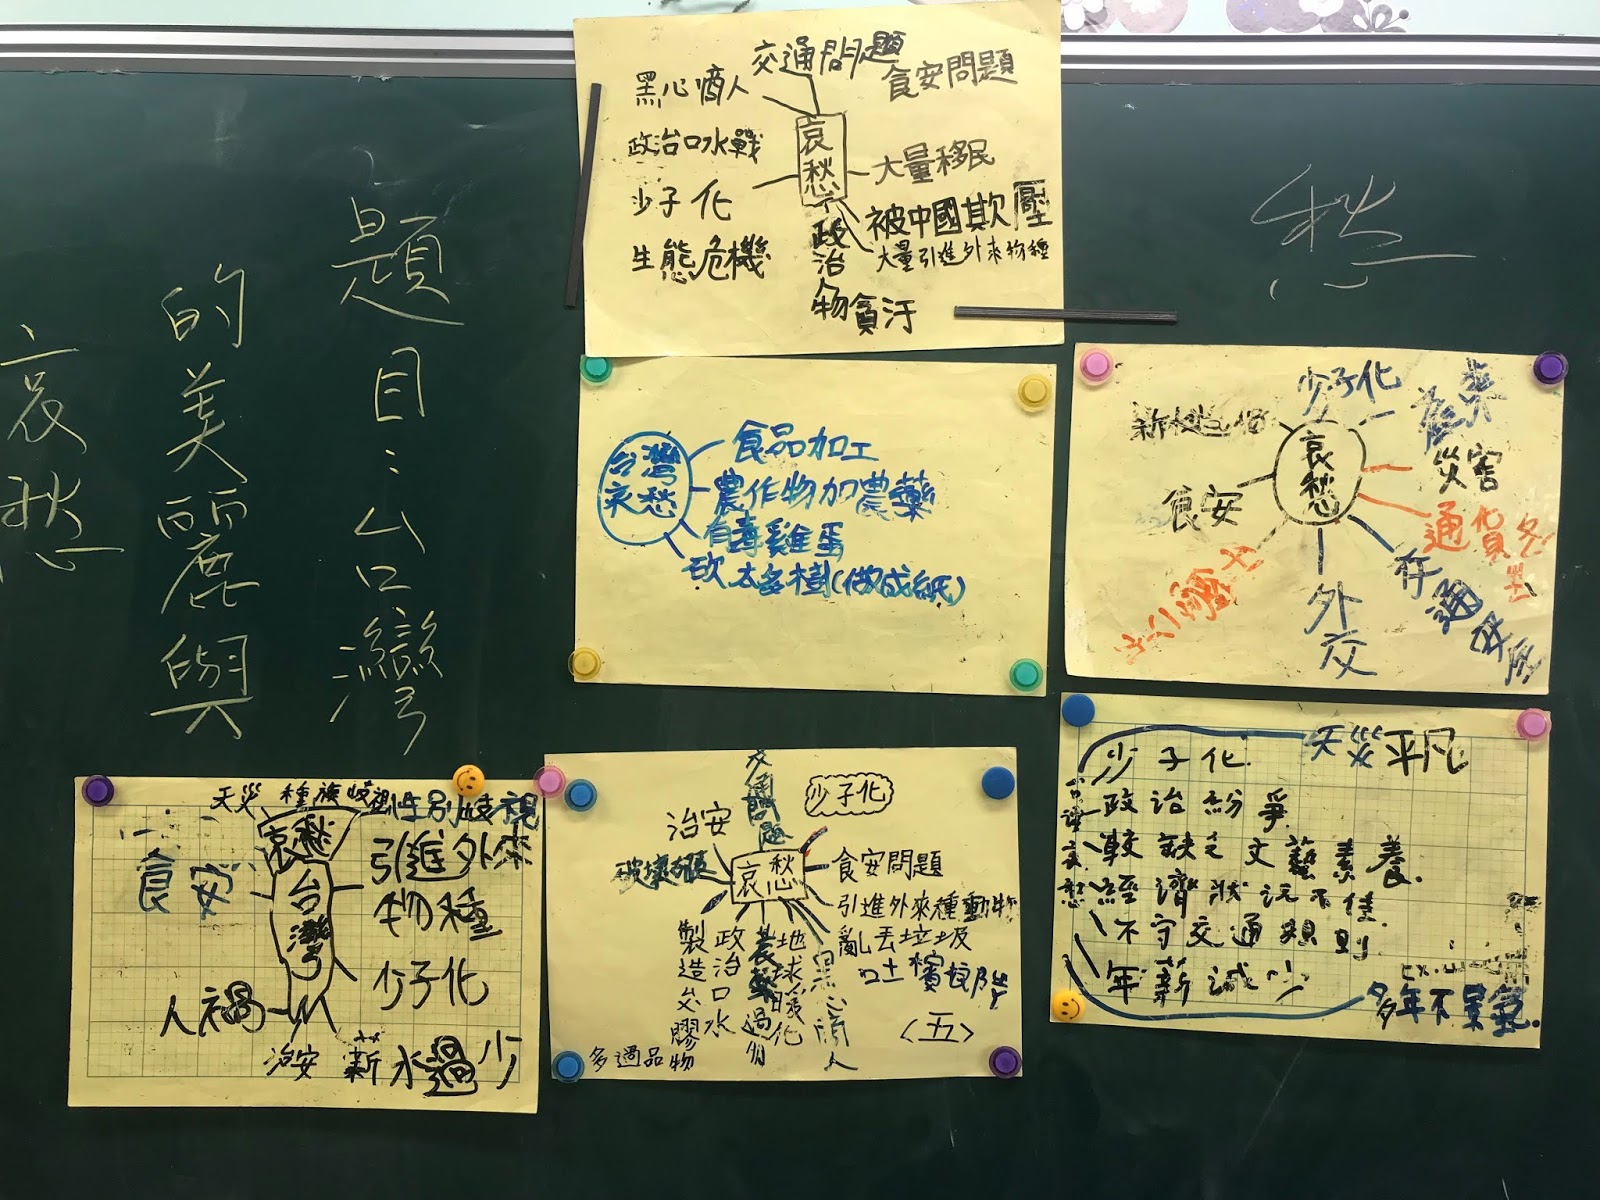 題目：台灣
的美麗與
哀愁
愁
交通問題
食安問題
黑心商人
政治口水戰
少子化
生態危機
哀愁
大量移民
被中國欺壓
大量引進外來物種
政治人物貪汙
台灣
哀愁
食品加工
農作物加農藥
有毒雞蛋
砍太多樹(做成紙)
少子化
產業
災害
哀愁
食安
外交
天災
種族歧視
性別歧視
哀愁
台灣
引進外來
物種
少子化
食安
人禍
治安
薪水過少
交通問題
少子化
治安
破壞
哀愁
食安問題
引進外來種動物
亂丟垃圾
吐檳榔
黑心商人
地球暖化
農藥過
政治口水
製造
多過
物品
〈五〉
天災
平凡
少子化
台灣哀愁
政治紛爭
較缺乏文藝素養
經濟狀況不佳
不守交通規則
年薪減少
多年不景氣